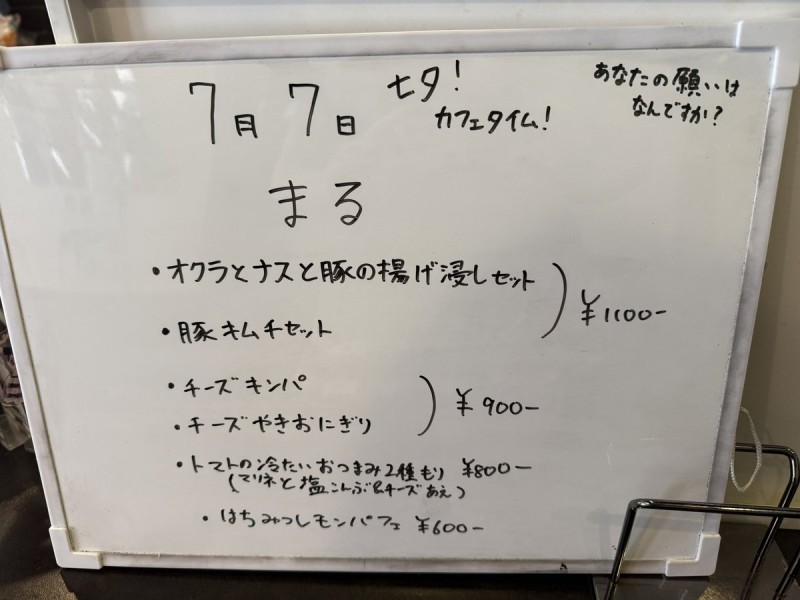 7月7日 七夕!
カフェタイム!
あなたの願いは
なんですか?
まる
・オクラとナスと豚の揚げ浸しセット
・豚キムチセット
¥1100-
・チーズキンパ
・チーズやきおにぎり
¥900-
・トマトの冷たいおつまみ2種もり ¥800-
(マリネと塩こんぶ&チーズあえ)
・はちみつレモンパフェ ¥600-